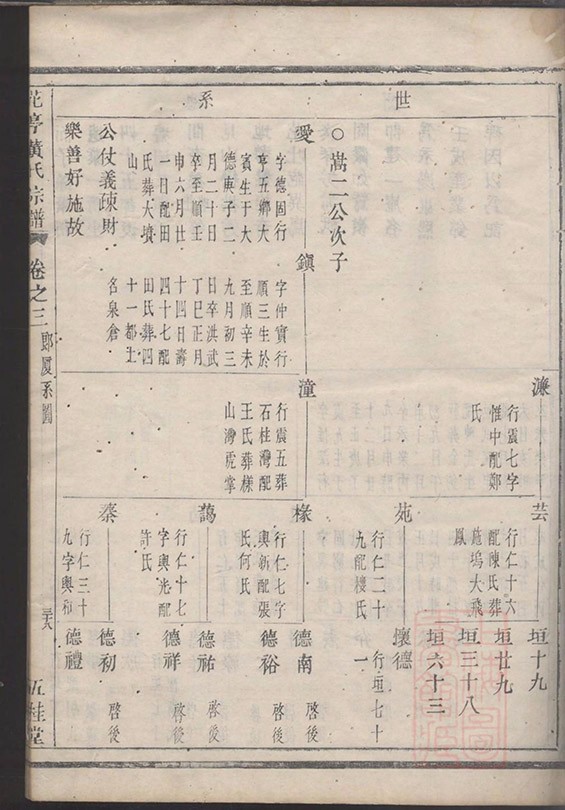 世
系
濂
行震七字
惟中配鄭
氏
芸
行仁十六
配陳氏葬
苑塢大飛
鳳
垣十九
垣廿九
垣三十八
垣六十三
苑
行仁二十
九配樓氏
懷德
行垣七十
一
○嵩二公次子
愛
字德固行
亨五鄉大
賓生于大
德庚子二
月二十日
卒至順壬
申六月廿
一日配田
氏葬大墳
山
鎮
字仲實行
順三生於
至順辛未
九月初三
日卒洪武
丁巳正月
十四日壽
四十七配
田氏葬四
十一都土
名泉倉
潼
行震五葬
石桂灣配
王氏葬樣
山灣虎掌
椽
行仁七字
輿新配張
氏何氏
德南
啓後
德裕
啓後
藹
行仁十七
字輿光配
許氏
德祐
啓愛
德祥
啓後
蓁
行仁三十
九字輿和
德初
啓後
德禮
公仗義疎財
樂善好施故
花亭黃氏宗譜
卷之三
郎厦系圖
五桂堂